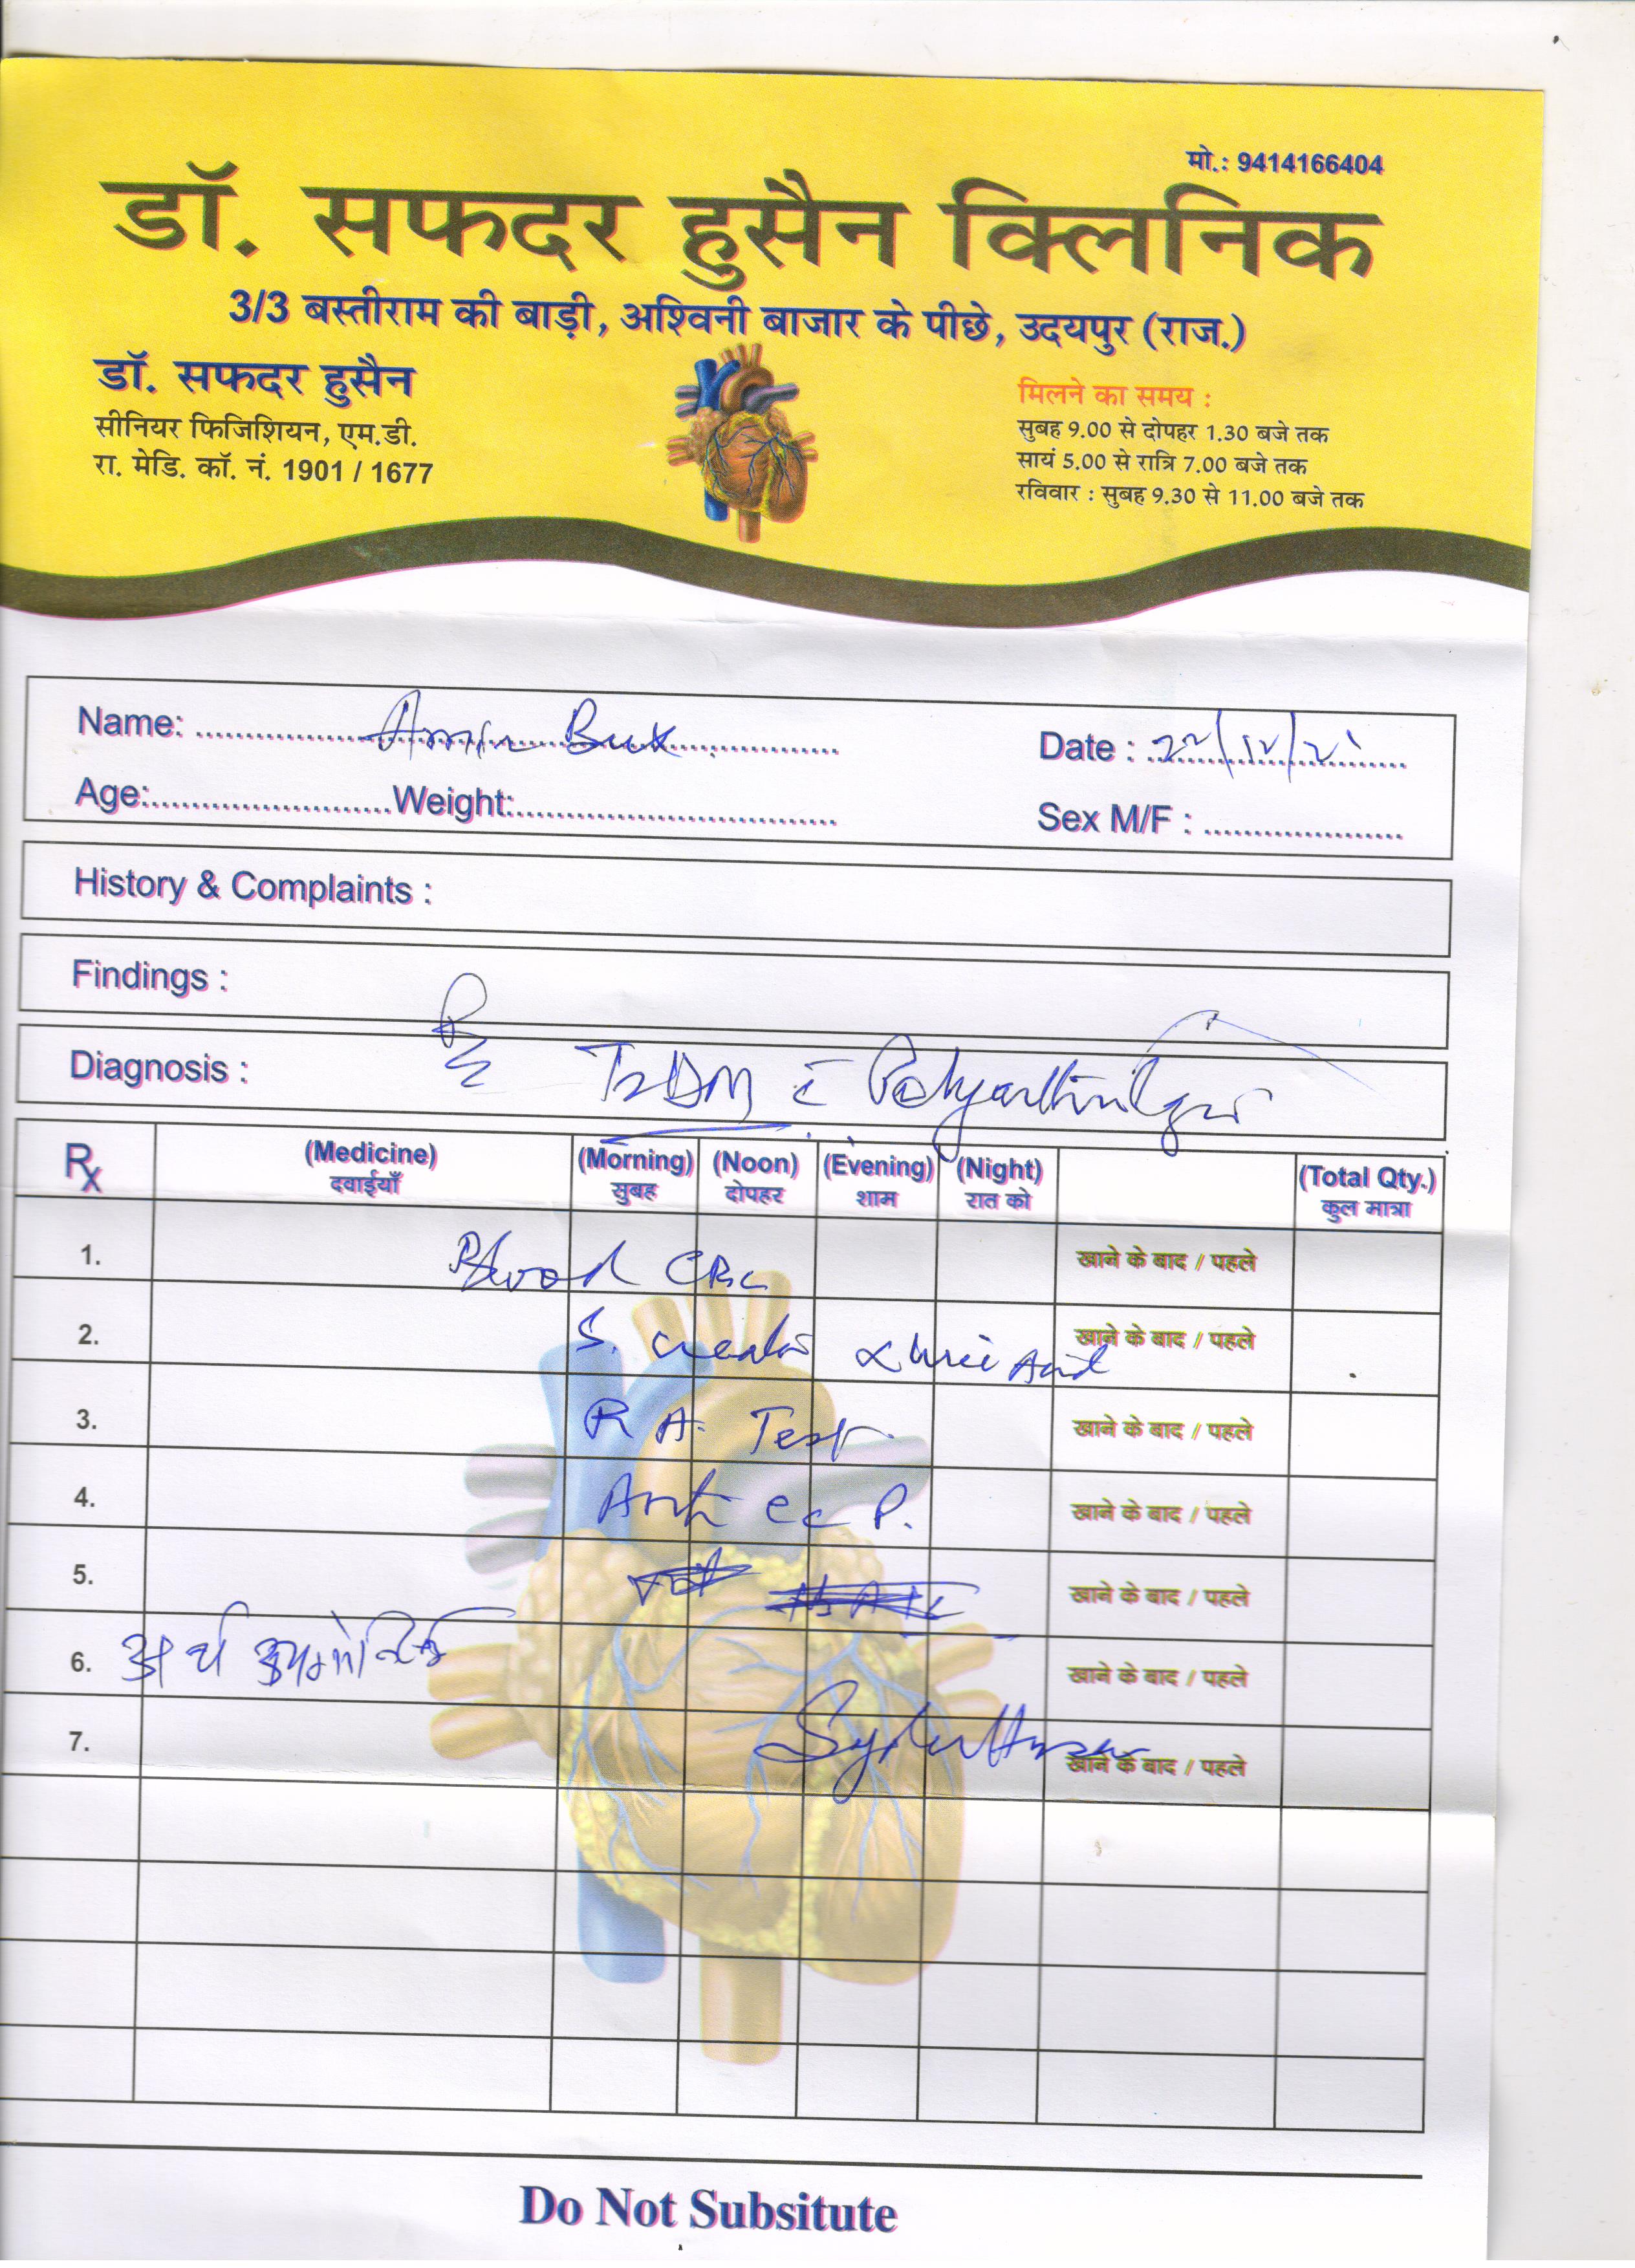 मो.: 9414166404
डॉ. सफदर हुसैन क्लिनिक
3/3 बस्तीराम की बाड़ी, अश्विनी बाजार के पीछे, उदयपुर (राज.)
डॉ. सफदर हुसैन
सीनियर फिजिशियन, एम.डी.
रा. मेडि. कॉ. नं. 1901 / 1677
मिलने का समय :
सुबह 9.00 से दोपहर 1.30 बजे तक
सायं 5.00 से रात्रि 7.00 बजे तक
रविवार : सुबह 9.30 से 11.00 बजे तक
Name: Amin Bux Date : 22/12/21
Age: Weight: Sex M/F :
History & Complaints :
Findings :
Diagnosis : T2DM c Polyarthralgia
Rx (Medicine) (Morning) (Noon) (Evening) (Night) (Total Qty.)
दवाईयाँ सुबह दोपहर शाम रात को कुल मात्रा
1. Blood CBC खाने के बाद / पहले
2. S. creat Uric Acid खाने के बाद / पहले
3. R A. Test खाने के बाद / पहले
4. Anti CCP. खाने के बाद / पहले
5. खाने के बाद / पहले
6. अर्थ खाने के बाद / पहले
7. खाने के बाद / पहले
Do Not Subsitute